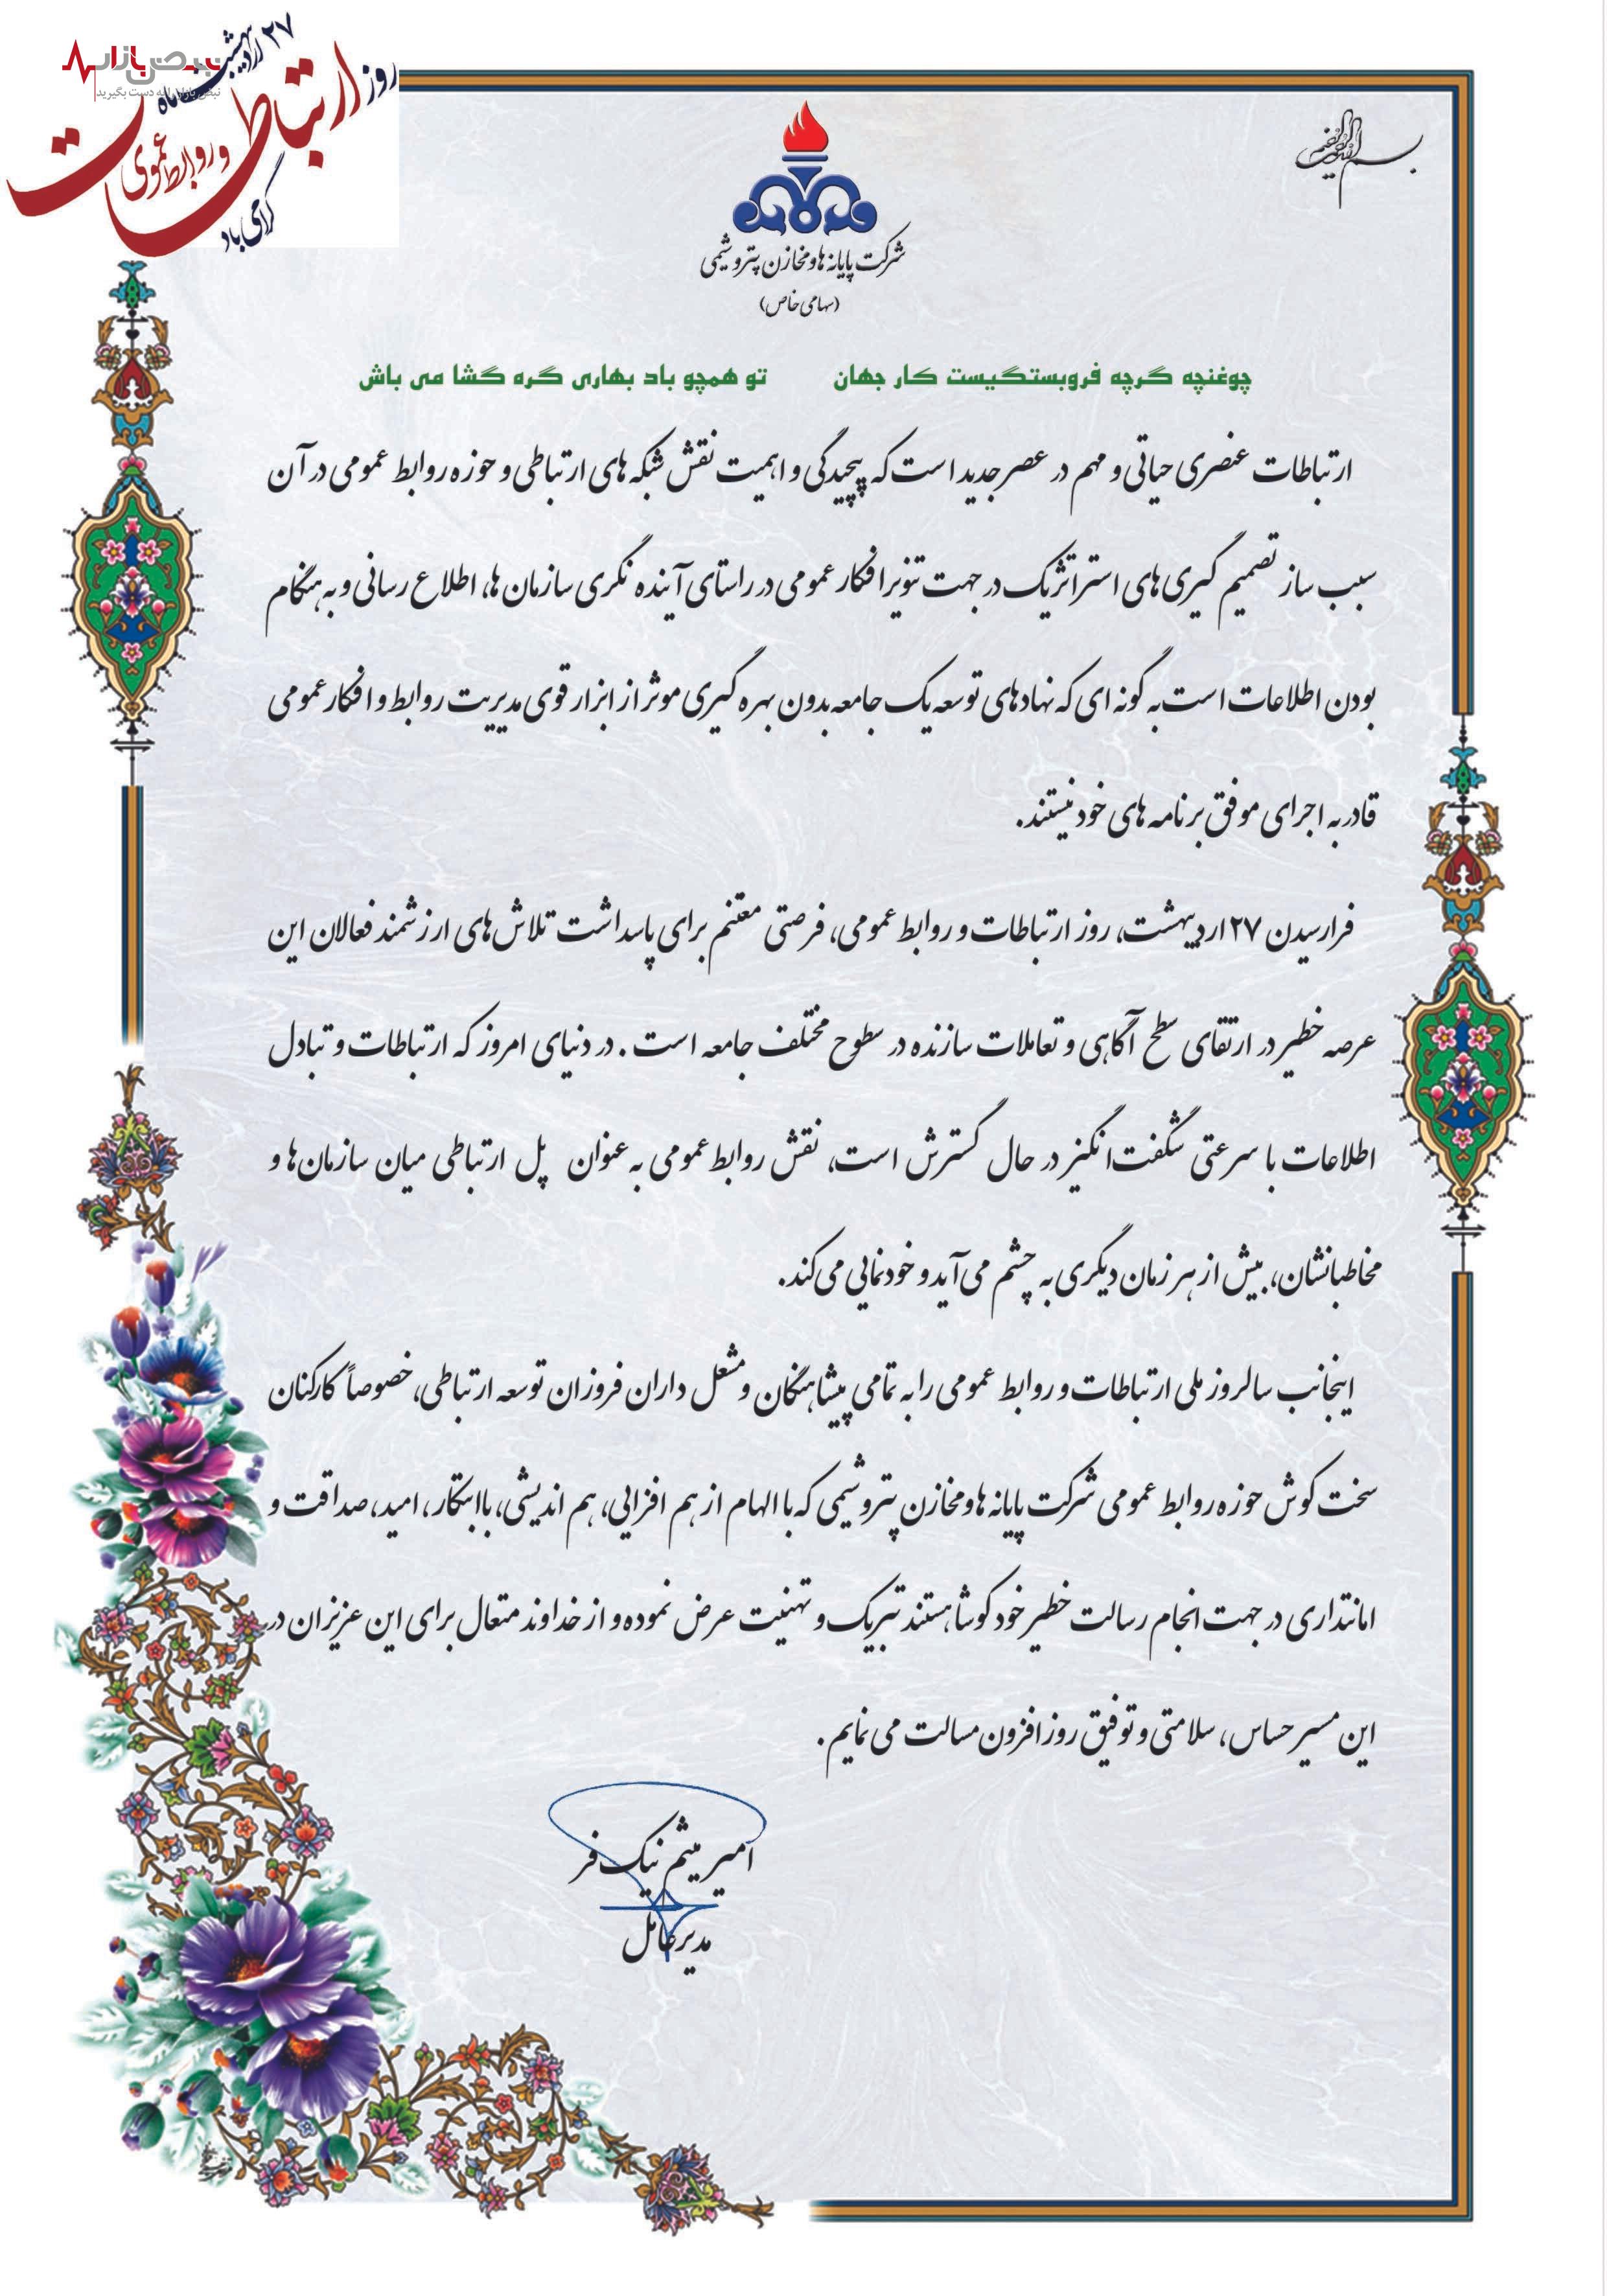 ۲۷ اردیبهشت ماه
روز ارتباطات
و روابط عمومی
گرامی باد
نبض بازار
نبض بازار را به دست بگیرید
بسم الله الرحمن الرحیم
شرکت پایانه ها و مخازن پتروشیمی
(سهامی خاص)
چو غنچه گرچه فروبستگیست کار جهان تو همچو باد بهاری گره گشا می باش
ارتباطات عنصری حیاتی و مهم در عصر جدید است که پیچیدگی و اهمیت نقش شبکه های ارتباطی و حوزه روابط عمومی در آن
سبب ساز تصمیم گیری های استراتژیک در جهت تنویر افکار عمومی در راستای آینده نگری سازمان ها، اطلاع رسانی و به هنگام
بودن اطلاعات است به گونه ای که نهادهای توسعه یک جامعه بدون بهره گیری موثر از ابزار قوی مدیریت روابط و افکار عمومی
قادر به اجرای موفق برنامه های خود نیستند.
فرارسیدن ۲۷ اردیبهشت، روز ارتباطات و روابط عمومی، فرصتی مغتنم برای پاسداشت تلاش‌های ارزشمند فعالان این
عرصه خطیر در ارتقای سطح آگاهی و تعاملات سازنده در سطوح مختلف جامعه است . در دنیای امروز که ارتباطات و تبادل
اطلاعات با سرعتی شگفت‌انگیز در حال گسترش است، نقش روابط عمومی به عنوان پل ارتباطی میان سازمان‌ها و
مخاطبانشان، بیش از هر زمان دیگری به چشم می‌آید و خودنمایی می‌کند.
اینجانب سالروز ملی ارتباطات و روابط عمومی را به تمامی پیشاهنگان و مشعل داران فروزان توسعه ارتباطی، خصوصاً کارکنان
سخت کوش حوزه روابط عمومی شرکت پایانه ها و مخازن پتروشیمی که با الهام از هم افزایی، هم اندیشی، با ابتکار، امید، صداقت و
امانتداری در جهت انجام رسالت خطیر خود کوشا هستند تبریک و تهنیت عرض نموده و از خداوند متعال برای این عزیزان در
این مسیر حساس، سلامتی و توفیق روز افزون مسالت می نمایم.
امیر میثم نیک فر
مدیرعامل